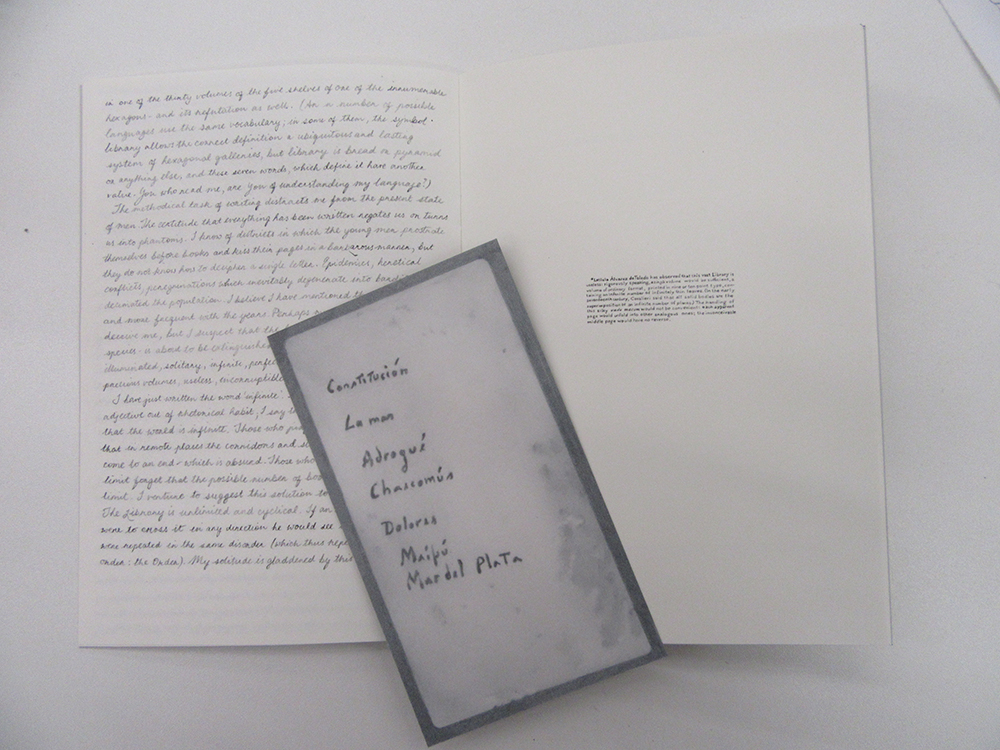 in one of the thirty volumes of the five shelves of one of the innumerable
hexagons - and its refutation as well. (An n number of possible
languages use the same vocabulary; in some of them, the symbol
library allows the correct definition a ubiquitous and lasting
system of hexagonal galleries, but library is bread or pyramid
or anything else, and these seven words, which define it have another
value. You who read me, are you of understanding my language?)
The methodical task of writing distracts me from the present state
of men. The certitude that everything has been written negates us or turns
us into phantoms. I know of districts in which the young men prostrate
themselves before books and kiss their pages in a barbarous manner, but
they do not know how to decipher a single letter. Epidemics, heretical
conflicts, peregrinations which inevitably degenerate into
decimated the population. I believe I have mentioned
and more frequent with the years. Perhaps
deceive me, but I suspect that the
species - is about to be extinguished
illuminated, solitary, infinite, perfec
precious volumes, useless, incorruptible
I have just written the word 'infinite'.
adjective out of rhetorical habit; I say
that the world is infinite. Those who
that in remote places the corridors and
come to an end - which is absurd. Those who
limit forget that the possible number of
limit. I venture to suggest this solution to
The Library is unlimited and cyclical. If an
were to cross it in any direction he would see
were repeated in the same disorder (which thus repe
order: the Order). My solitude is gladdened by this
Constitución
La mar
Adrogué
Chascomús
Dolores
Maipú
Mar del Plata
*Letizia Álvarez de Toledo has observed that this vast Library is
useless: rigorously speaking, a single volume would be sufficient, a
volume of ordinary format, printed in nine or ten point type, con-
taining an infinite number of infinitely thin leaves. (In the early
seventeenth century, Cavalieri said that all solid bodies are the
superimposition of an infinite number of planes.) The handling of
this silky vade mecum would not be convenient: each apparent
page would unfold into other analogous ones; the inconceivable
middle page would have no reverse.